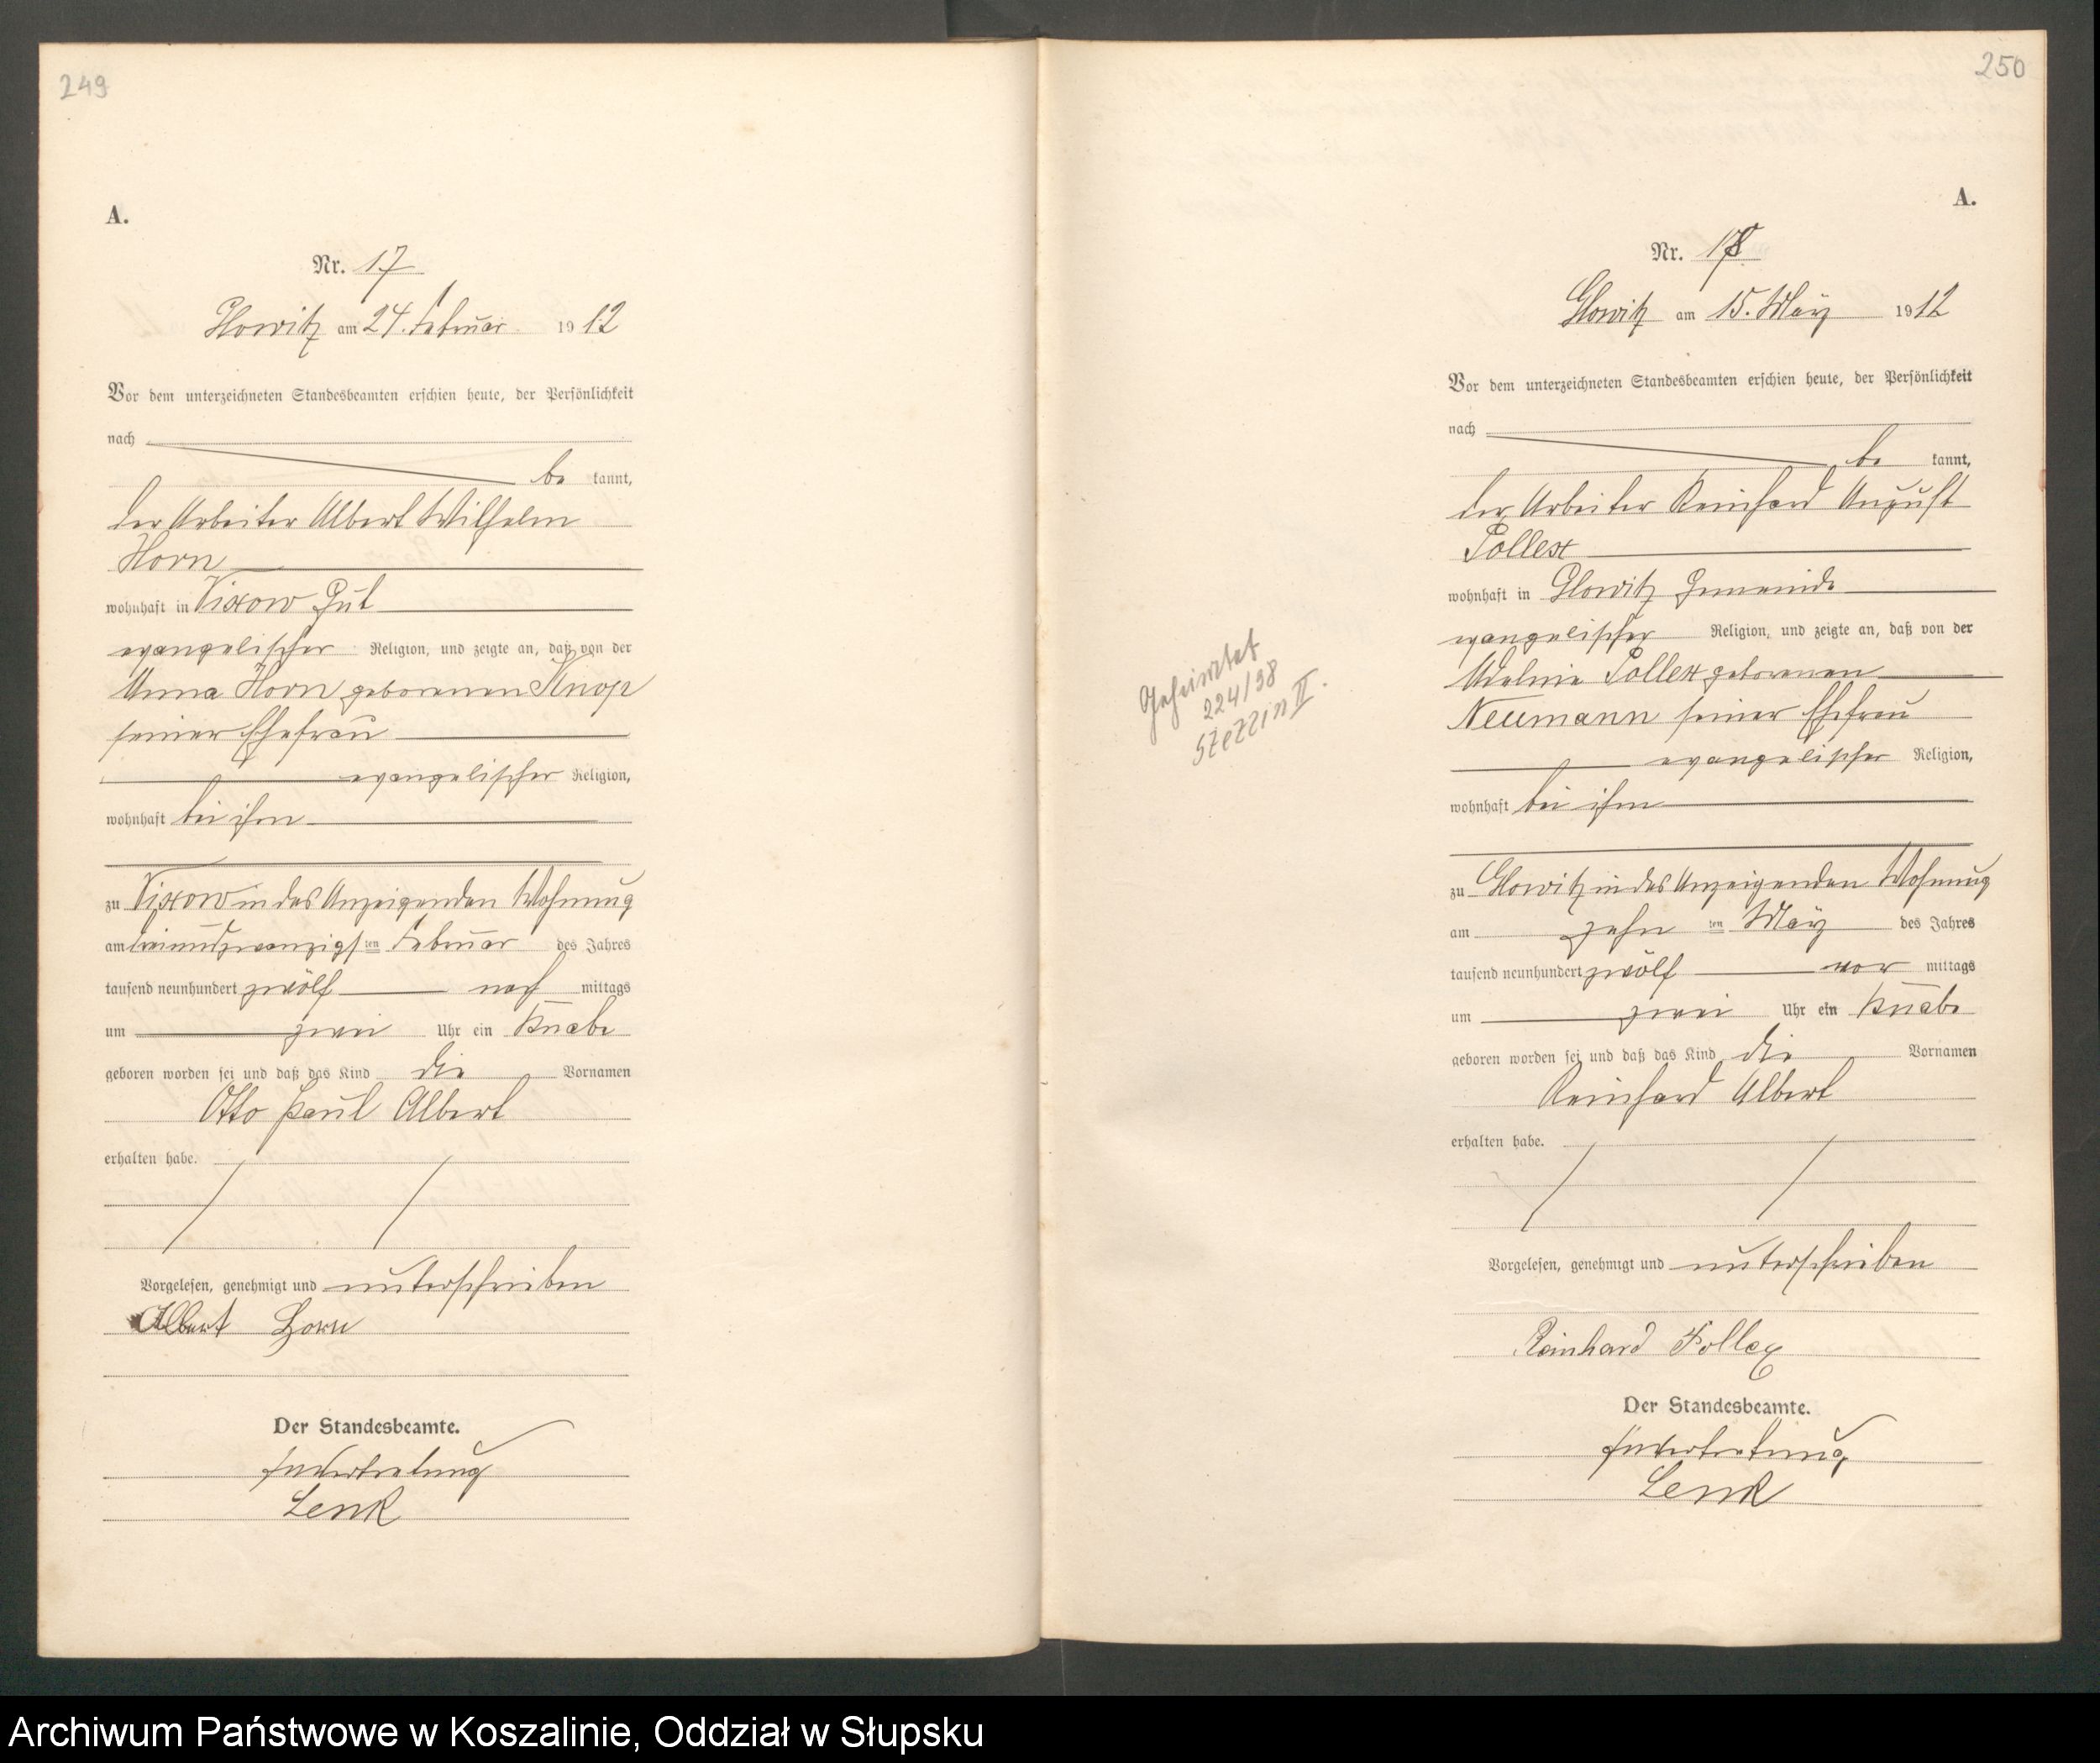 249
A.
Nr. 17
Glowitz am 24. Februar 1912
Vor dem unterzeichneten Standesbeamten erschien heute, der Persönlichkeit
nach
be kannt,
der Arbeiter Albert Wilhelm
Horn
wohnhaft in Vixow Gut
evangelischer Religion, und zeigte an, daß von der
Anna Horn geborenen Knop
seiner Ehefrau
evangelischer Religion,
wohnhaft bei ihm
zu Vixow in des Anzeigenden Wohnung
am dreiundzwanzigsten Februar des Jahres
tausend neunhundert zwölf nach mittags
um zwei Uhr ein Knabe
geboren worden sei und daß das Kind die Vornamen
Otto Paul Albert
erhalten habe.
Vorgelesen, genehmigt und unterschrieben
Albert Horn
Der Standesbeamte.
In Vertretung
Lenk
250
A.
Nr. 18
Glowitz am 15. März 1912
Vor dem unterzeichneten Standesbeamten erschien heute, der Persönlichkeit
nach
be kannt,
der Arbeiter Reinhard August
Pollex
wohnhaft in Glowitz Gemeinde
evangelischer Religion, und zeigte an, daß von der
Adeline Pollex geborenen
Neumann seiner Ehefrau
evangelischer Religion,
wohnhaft bei ihm
zu Glowitz in des Anzeigenden Wohnung
am zehn ten März des Jahres
tausend neunhundert zwölf vor mittags
um zwei Uhr ein Knabe
geboren worden sei und daß das Kind die Vornamen
Reinhard Albert
erhalten habe.
Vorgelesen, genehmigt und unterschrieben
Reinhard Pollex
Der Standesbeamte.
In Vertretung
Lenk
Geheiratet
224/38
Stettin II.
Archiwum Państwowe w Koszalinie, Oddział w Słupsku